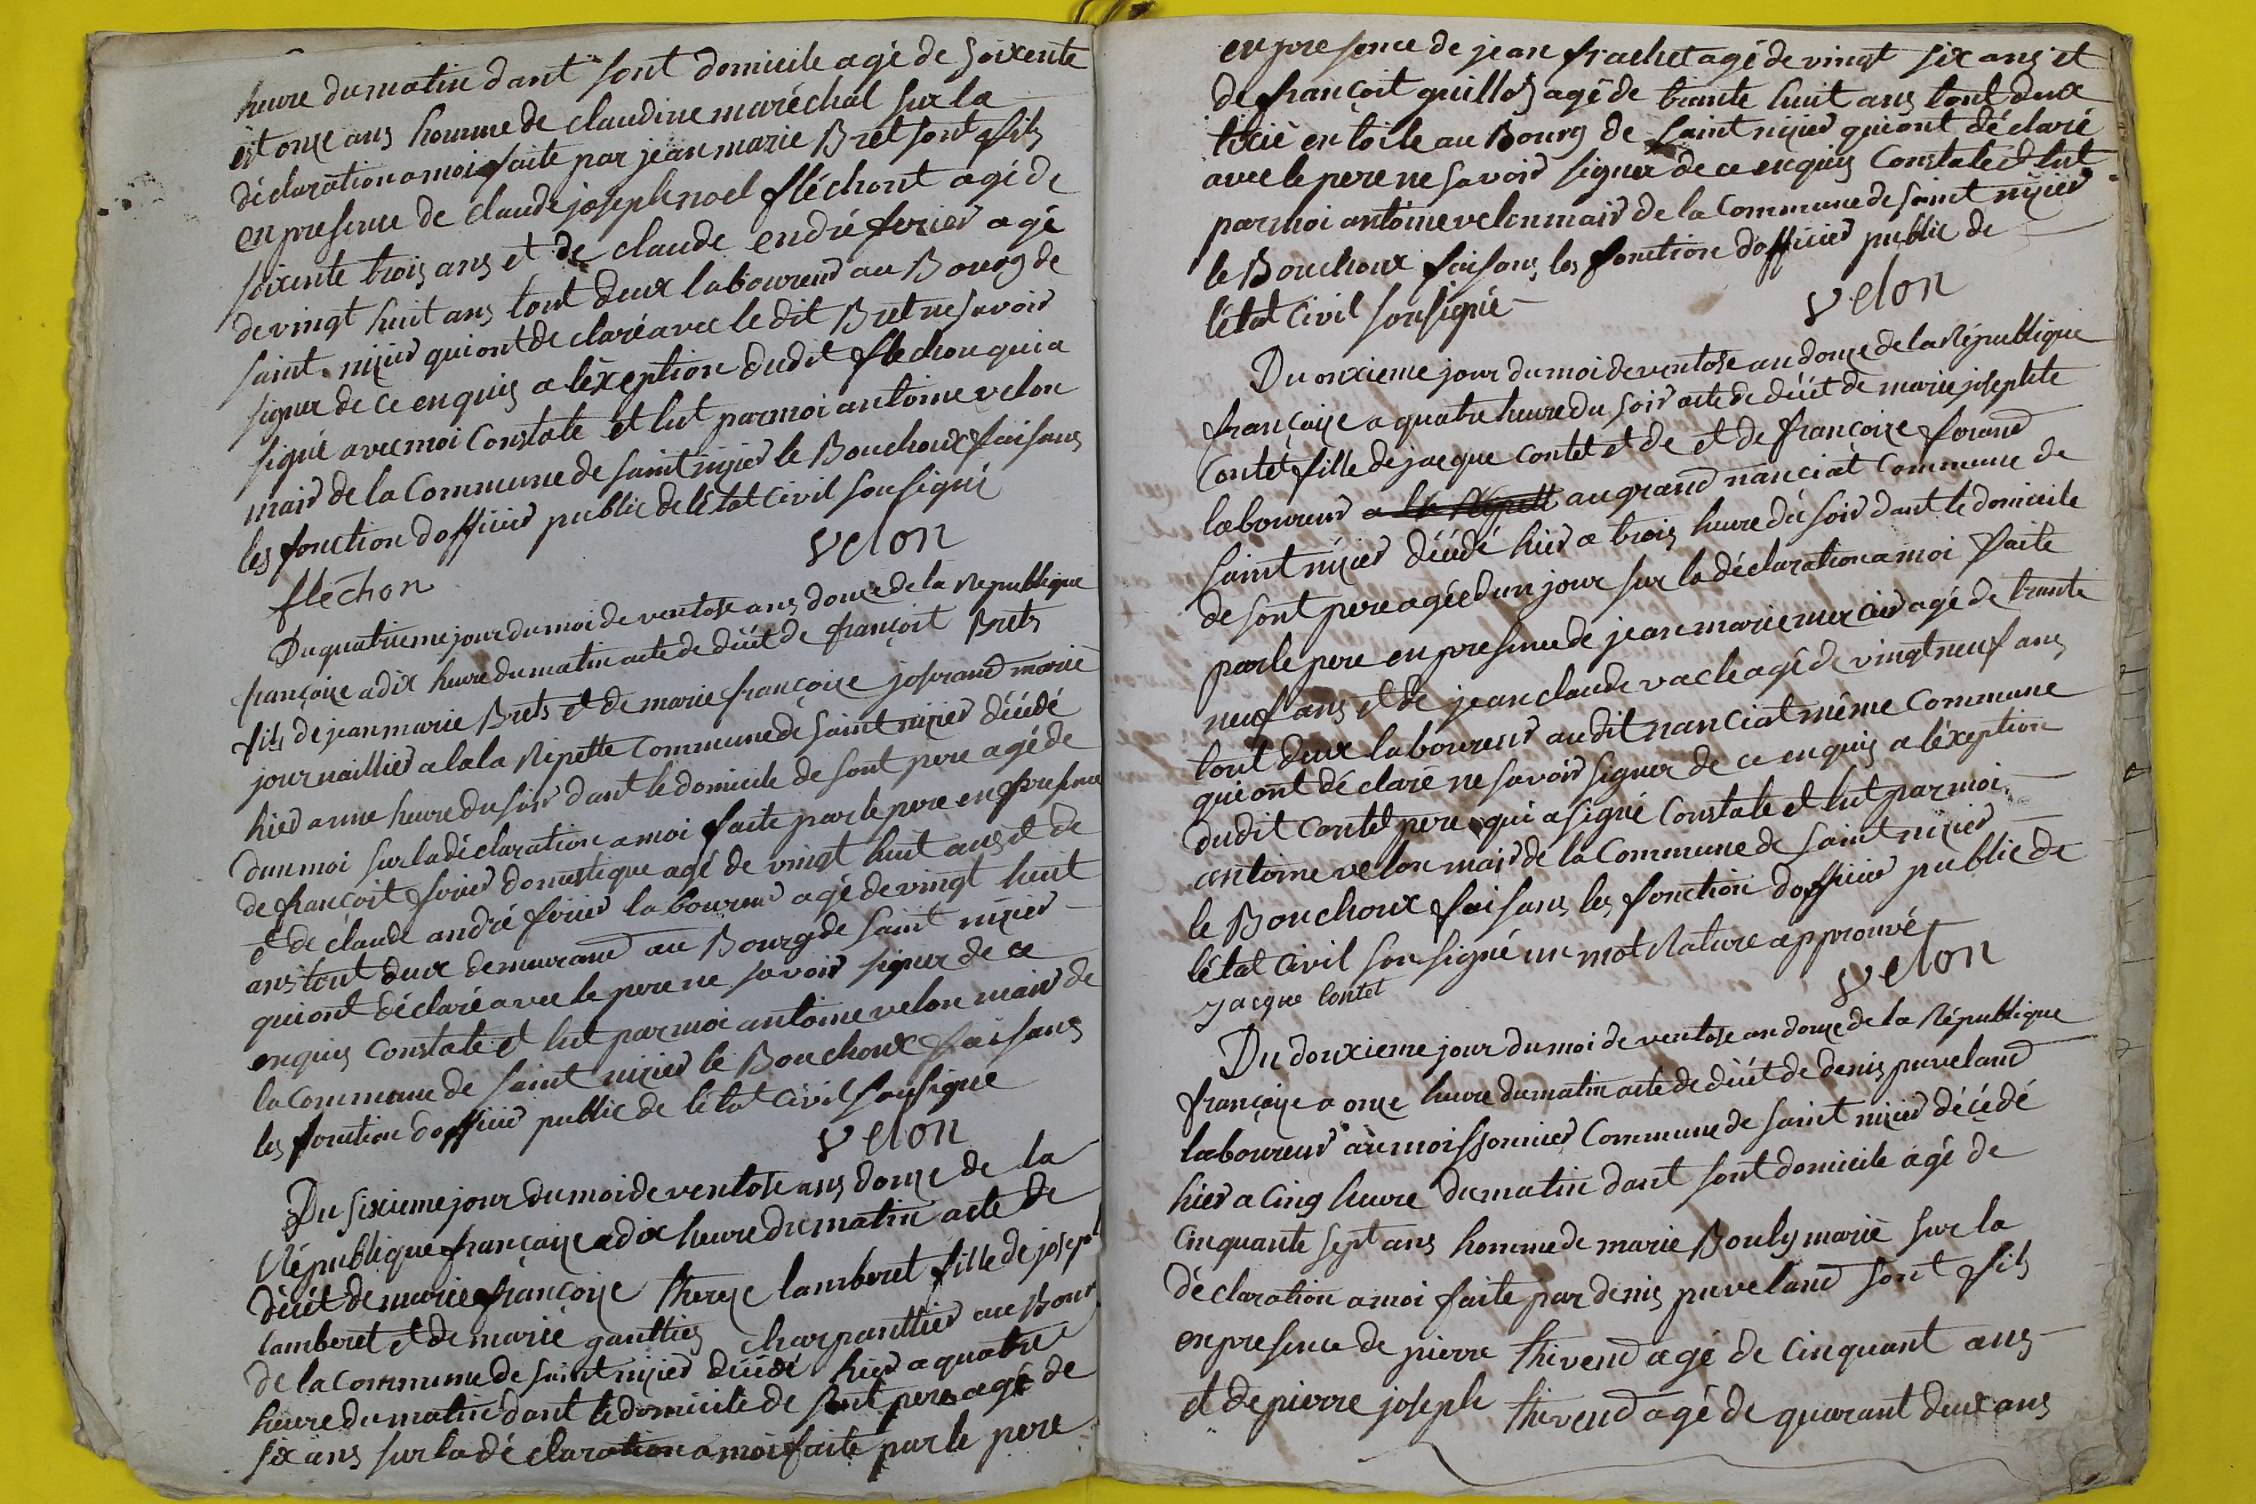 heure du matin dant sont domicile agé de soixente
et onze ans homme de claudine maréchal sur la
déclaration a moi faite par jean marie Bret sont fils
en presence de claude joseph noel fléchont agé de
soixente trois ans et de claude endré ferier agé
de vingt huit ans tout deux laboureur au Bourg de
saint nizier qui ont de claré avec le dit Bret ne savoir
signer de ce enquis a l'èxeption dudit flechon qui a
signé avec moi Constate et lut par moi antoine velon
mair de la Commune de saint nizier le Bouchoux faisans
les fonction dofficier public de létat Civil sousigné
velon
flechon
Du quatrieme jour du moi de ventose ans douze de la Republique
françaize a dix heure du matin acte de décét de françoit Brets
fils de jean marie Brets et de marie françoize josserand marié
journaillier a la la Ripette Commune de saint nizier décédé
hier a une heure du soir dant le domicile de sont pere agé de
dun moi sur la déclaration a moi faite par le pere en presence
de françoit ferier domestique agé de vingt huit ans et de
et de claude andré ferier laboureur agé de vingt huit
ans tout deux demeurand au Bourg de saint nizier
qui ont déclaré avec le pere ne savoir signer de ce
enquis Constate et lut par moi antoine velon mair de
la Commune de saint nizier le Bouchoux faisans
les fonction dofficier public de létat Civil sousigné
velon
Du sixieme jour du moi de ventose ans douze de la
République françaize a dix heure du matin acte de
décét de marie françoize thereze lamberet fille de joseph
lamberet et de marie gauthier charpanttier au Bourg
de la Commune de saint nizier décédé hier a quatre
heure du matin dant le domicile de sont pere agé de
six ans sur la déclaration a moi faite par le pere
en presence de jean frachet agé de vingt six ans et
de françoit guillot agé de trante huit ans tout deux
tixié en toile au Bourg de saint nizier qui ont déclaré
avec le pere ne savoir signer de ce enquis Constate et lut
par moi antoine velon mair de la Commune de saint nizier
le Bouchoux faisans les fonction dofficier public de
létat Civil sousigné
velon
Du onxieme jour du moi de ventose an douze de la République
françaize a quatre heure du soir acte de décét de marie josephte
Contet fille de jacque Contet et de et de françoize forand
laboureur a au grand nanciat Commune de
saint nizier décédé hier a trois heure du soir dant le domicile
de sont pere agée dun jour sur la déclaration a moi faite
par le pere en presence de jean marie mercier agé de trante
neuf ans et de jean claude vacle agé de vingt neuf ans
tout deux laboureur au dit nanciat même Commune
qui ont déclaré ne savoir signer de ce enquis a l'éxeption
dudit Contet pere qui a signé Constate et lut par moi
antoine velon mair de la Commune de saint nizier
le Bouchoux faisans les fonction dofficier public de
létat Civil sousigné un mot Rature approuvé
velon
Jacque Contet
Du douxieme jour du moi de ventose an douze de la République
françaize a onze heure du matin acte de décét de denis puveland
laboureur au moissonnier Commune de saint nizier décédé
hier a Cinq heure du matin dant sont domicile agé de
Cinquante sept ans homme de marie Bouly marié sur la
déclaration a moi faite par denis puveland sont fils
en presence de pierre thevend agé de Cinquant ans
et de pierre joseph thevend agé de quarant deux ans